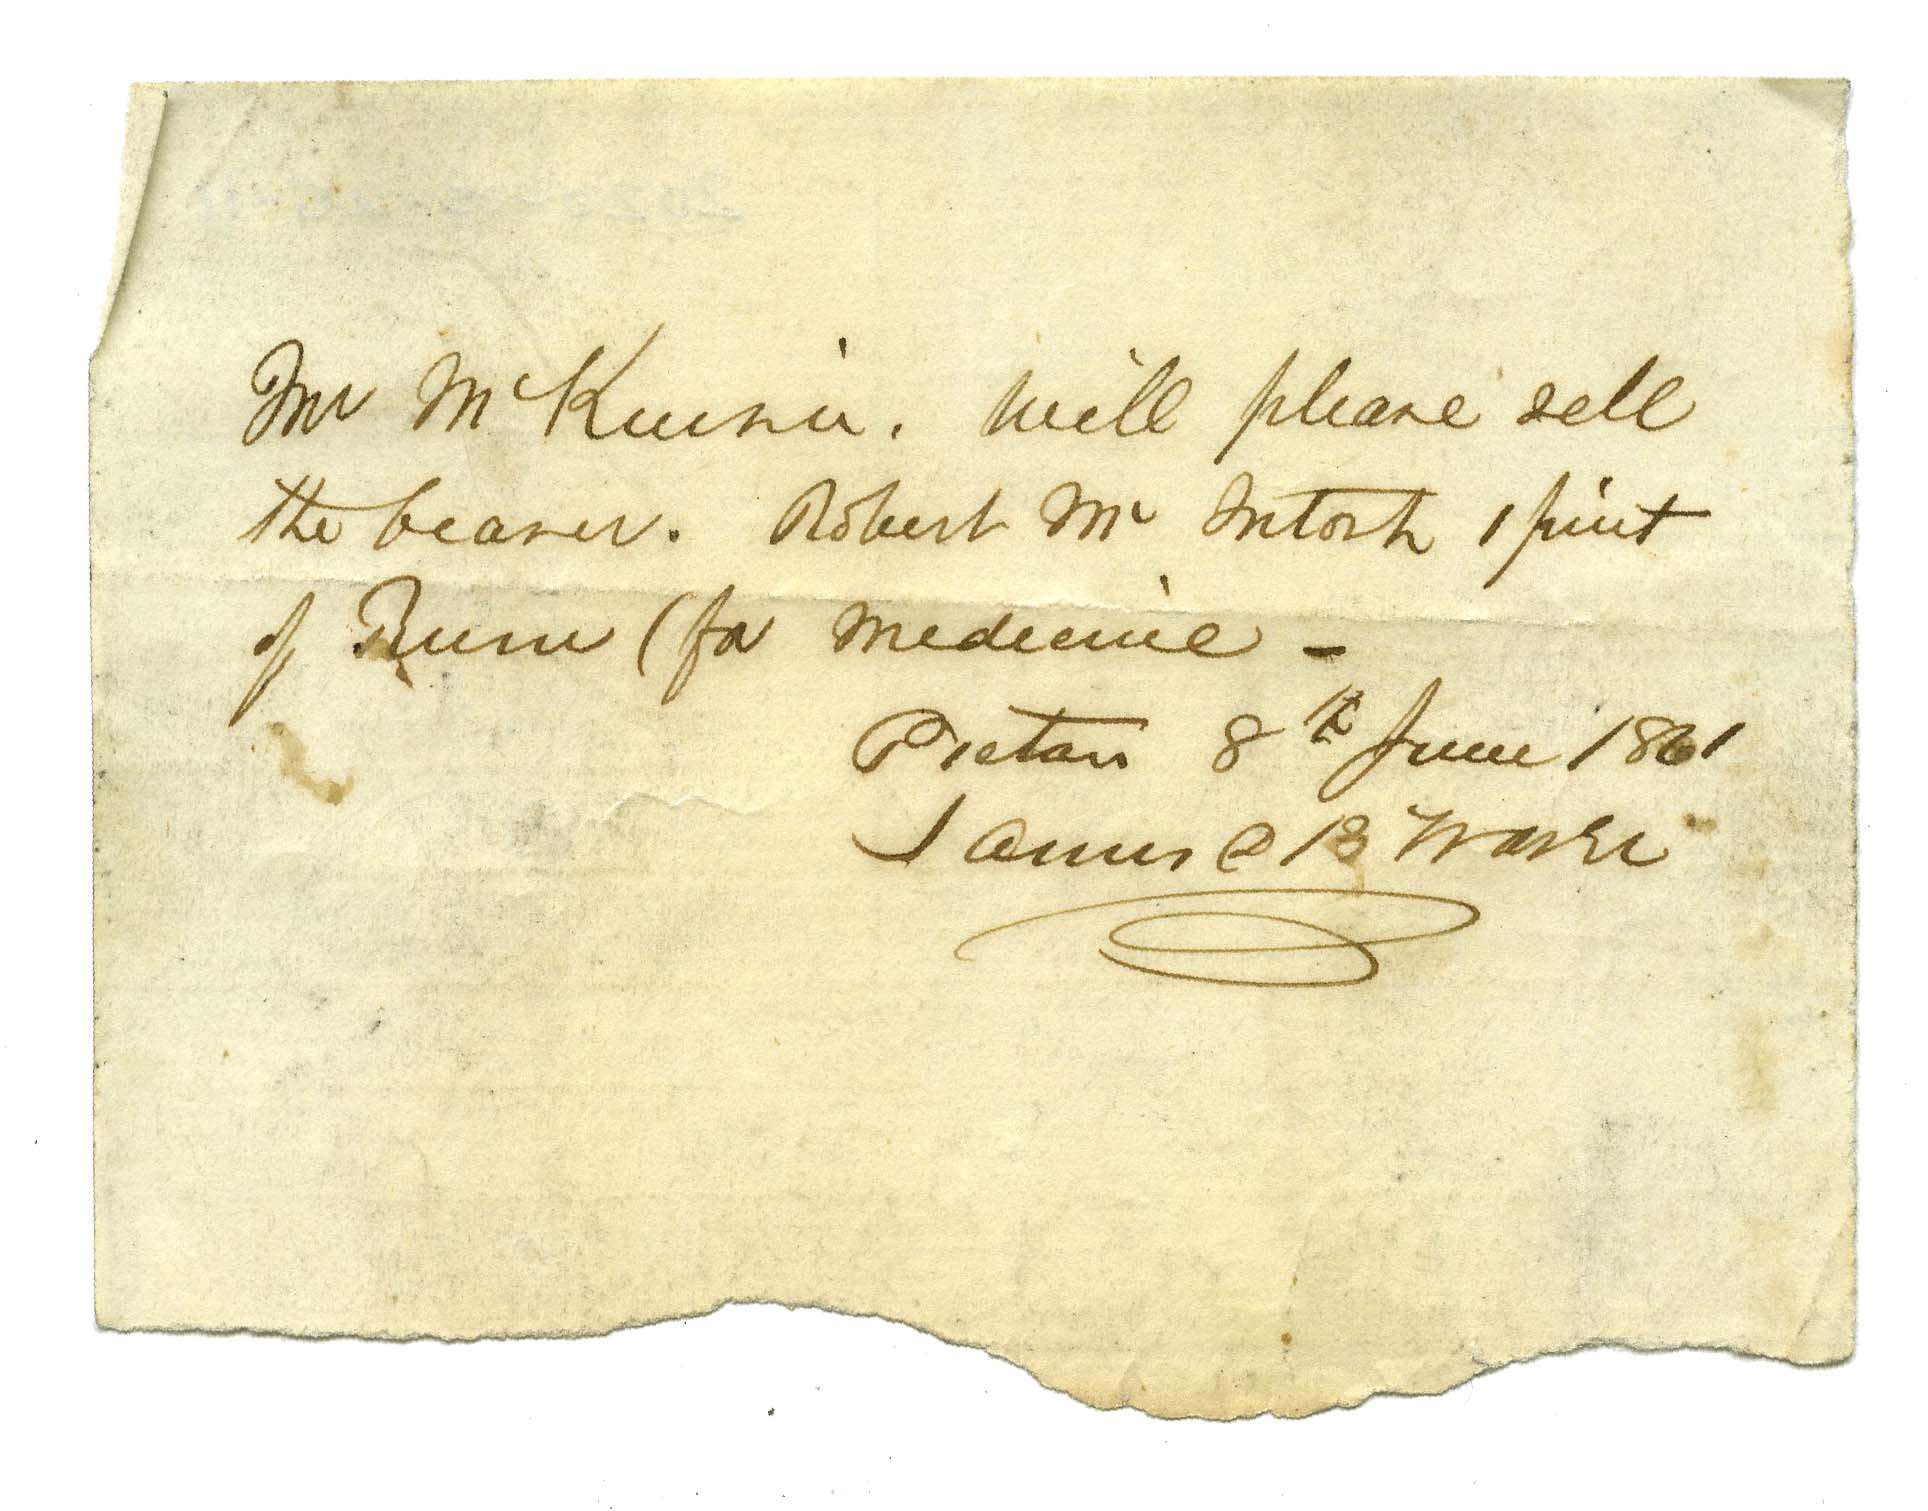 Mr McKinnie. Will please sell
the bearer. Robert Mc Intosh 1 pint
of Rum (for medicine -
Pictou 8th June 1861
James